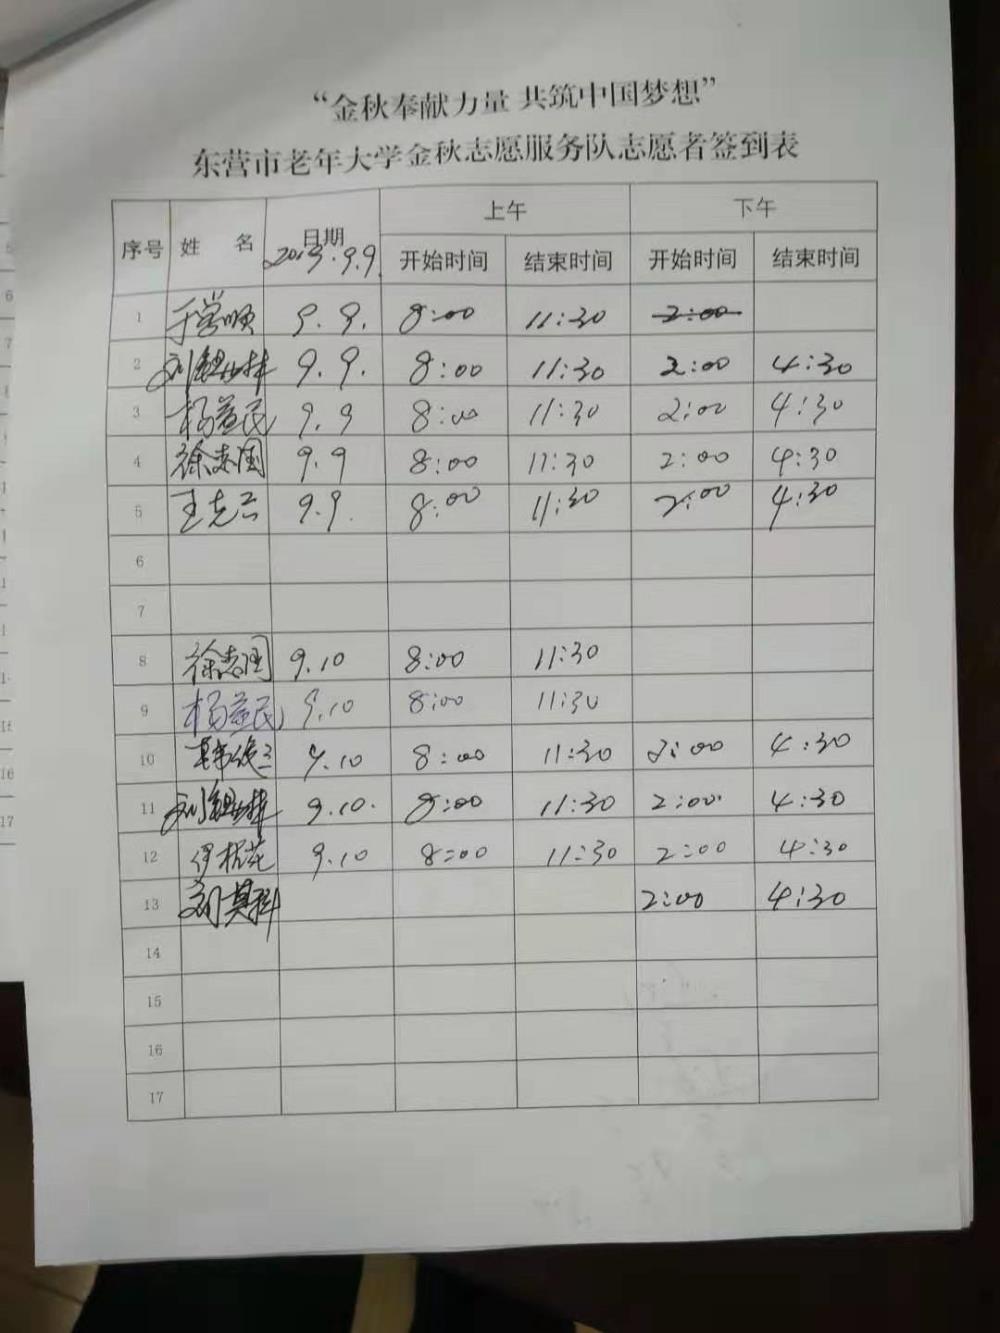 “金秋奉献力量 共筑中国梦想”
东营市老年大学金秋志愿服务队志愿者签到表
序号 姓 名 日期 上午 下午
2019.9.9. 开始时间 结束时间 开始时间 结束时间
1 于学顺 9.9. 8:00 11:30 2:00
2 刘 9.9. 8:00 11:30 2:00 4:30
3 杨益民 9.9 8:00 11:30 2:00 4:30
4 徐志国 9.9 8:00 11:30 2:00 4:30
5 王 9.9. 8:00 11:30 2:00 4:30
6
7
8 徐志国 9.10 8:00 11:30
9 杨益民 9.10 8:00 11:30
10 9.10 8:00 11:30 2:00 4:30
11 刘 9.10. 8:00 11:30 2:00 4:30
12 伊桂花 9.10 8:00 11:30 2:00 4:30
13 刘其科 2:00 4:30
14
15
16
17